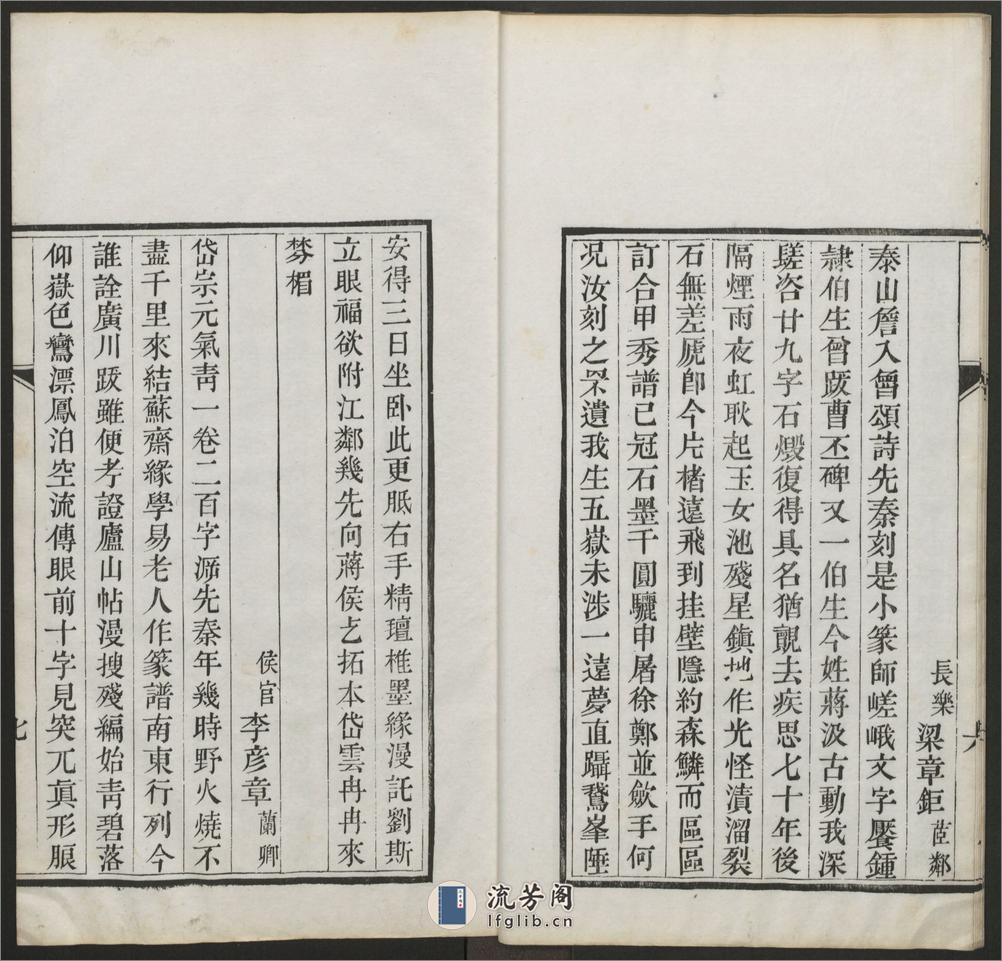 長樂梁章鉅茝鄰
泰山詹入曾頌詩先秦刻是小篆師嵯峨文字饜鍾
隸伯生曾跋曹丕碑又一伯生今姓蔣汲古動我深
嗟咨廿九字石燬復得具名猶覬去疾思七十年後
隔煙雨夜虹耿起玉女池殘星鎮地作光怪漬溜裂
石無差虒卽今片楮遠飛到挂壁隱約森鱗而區區
訂合甲秀譜已冠石墨千圓驪申屠徐鄭並斂手何
况汝刻之杲遺我生五嶽未涉一遠夢直躡鵞峯陲
安得三日坐卧此更胝右手精璮椎墨緣漫託劉斯
立眼福欲附江鄰幾先向蔣侯乞拓本岱雲冉冉來
棼楣
侯官李彥章蘭卿
岱宗元氣青一卷二百字㴑先秦年幾時野火燒不
盡千里來結蘇齋緣學易老人作篆譜南東行列今
誰詮廣川跋雖便考證廬山帖漫搜殘編始青碧落
仰嶽色鸞漂鳳泊空流傳眼前十字見突兀眞形服
六
七
流芳阁
lfglib.cn